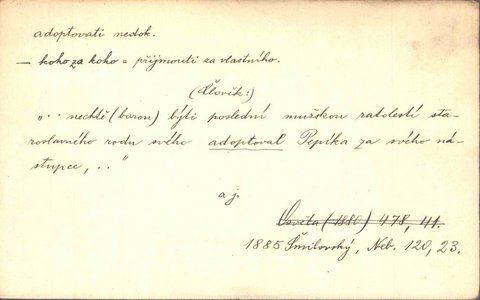 adoptovati nedok.
— koho za koho = přijmouti za vlastního.
(Člověk:)
".. nechtě (baron) býti poslední mužskou ratolestí sta-
roslavného rodu svého adoptoval Pepíka za svého ná-
stupce, .."
a j.
Osvěta (1880) 478, 41.
1885 Šmilovský, Neb. 120, 23.